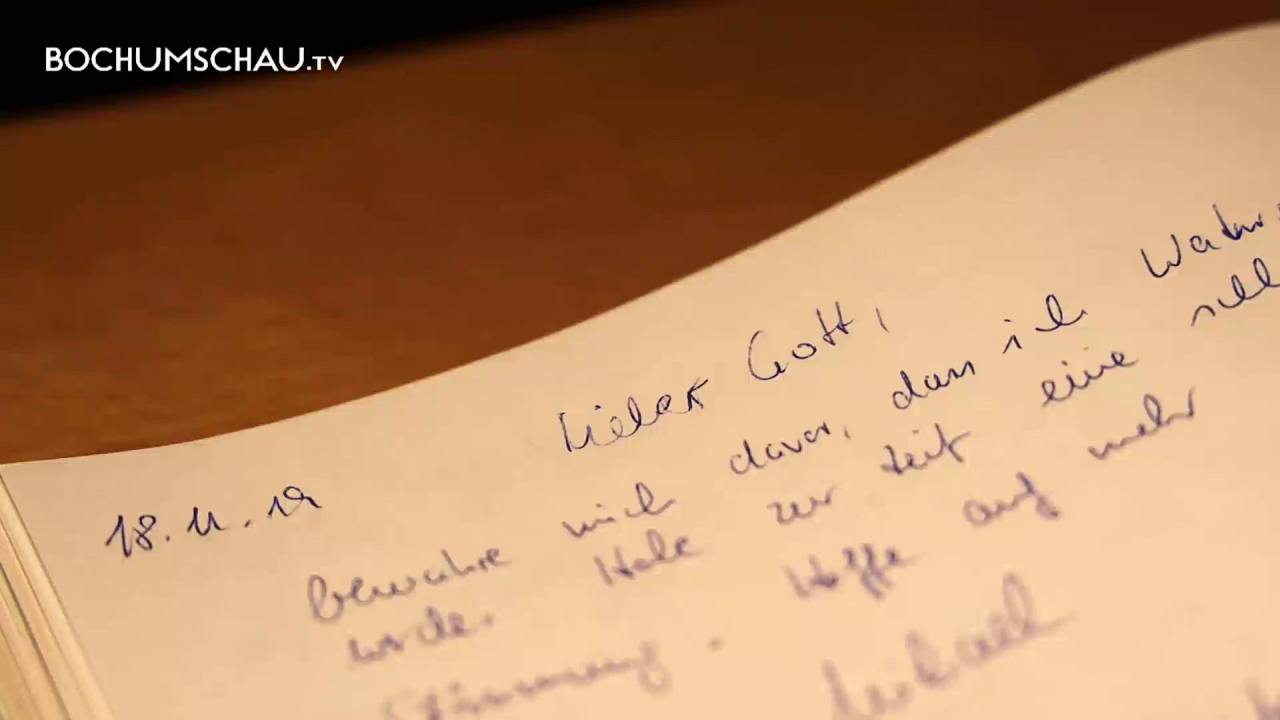 BOCHUMSCHAU.TV
Lieber Gott,
18.11.19
bewahre mich davor, dass ich
werde. Habe zur Zeit eine
Stimmung. Hoffe auf mehr